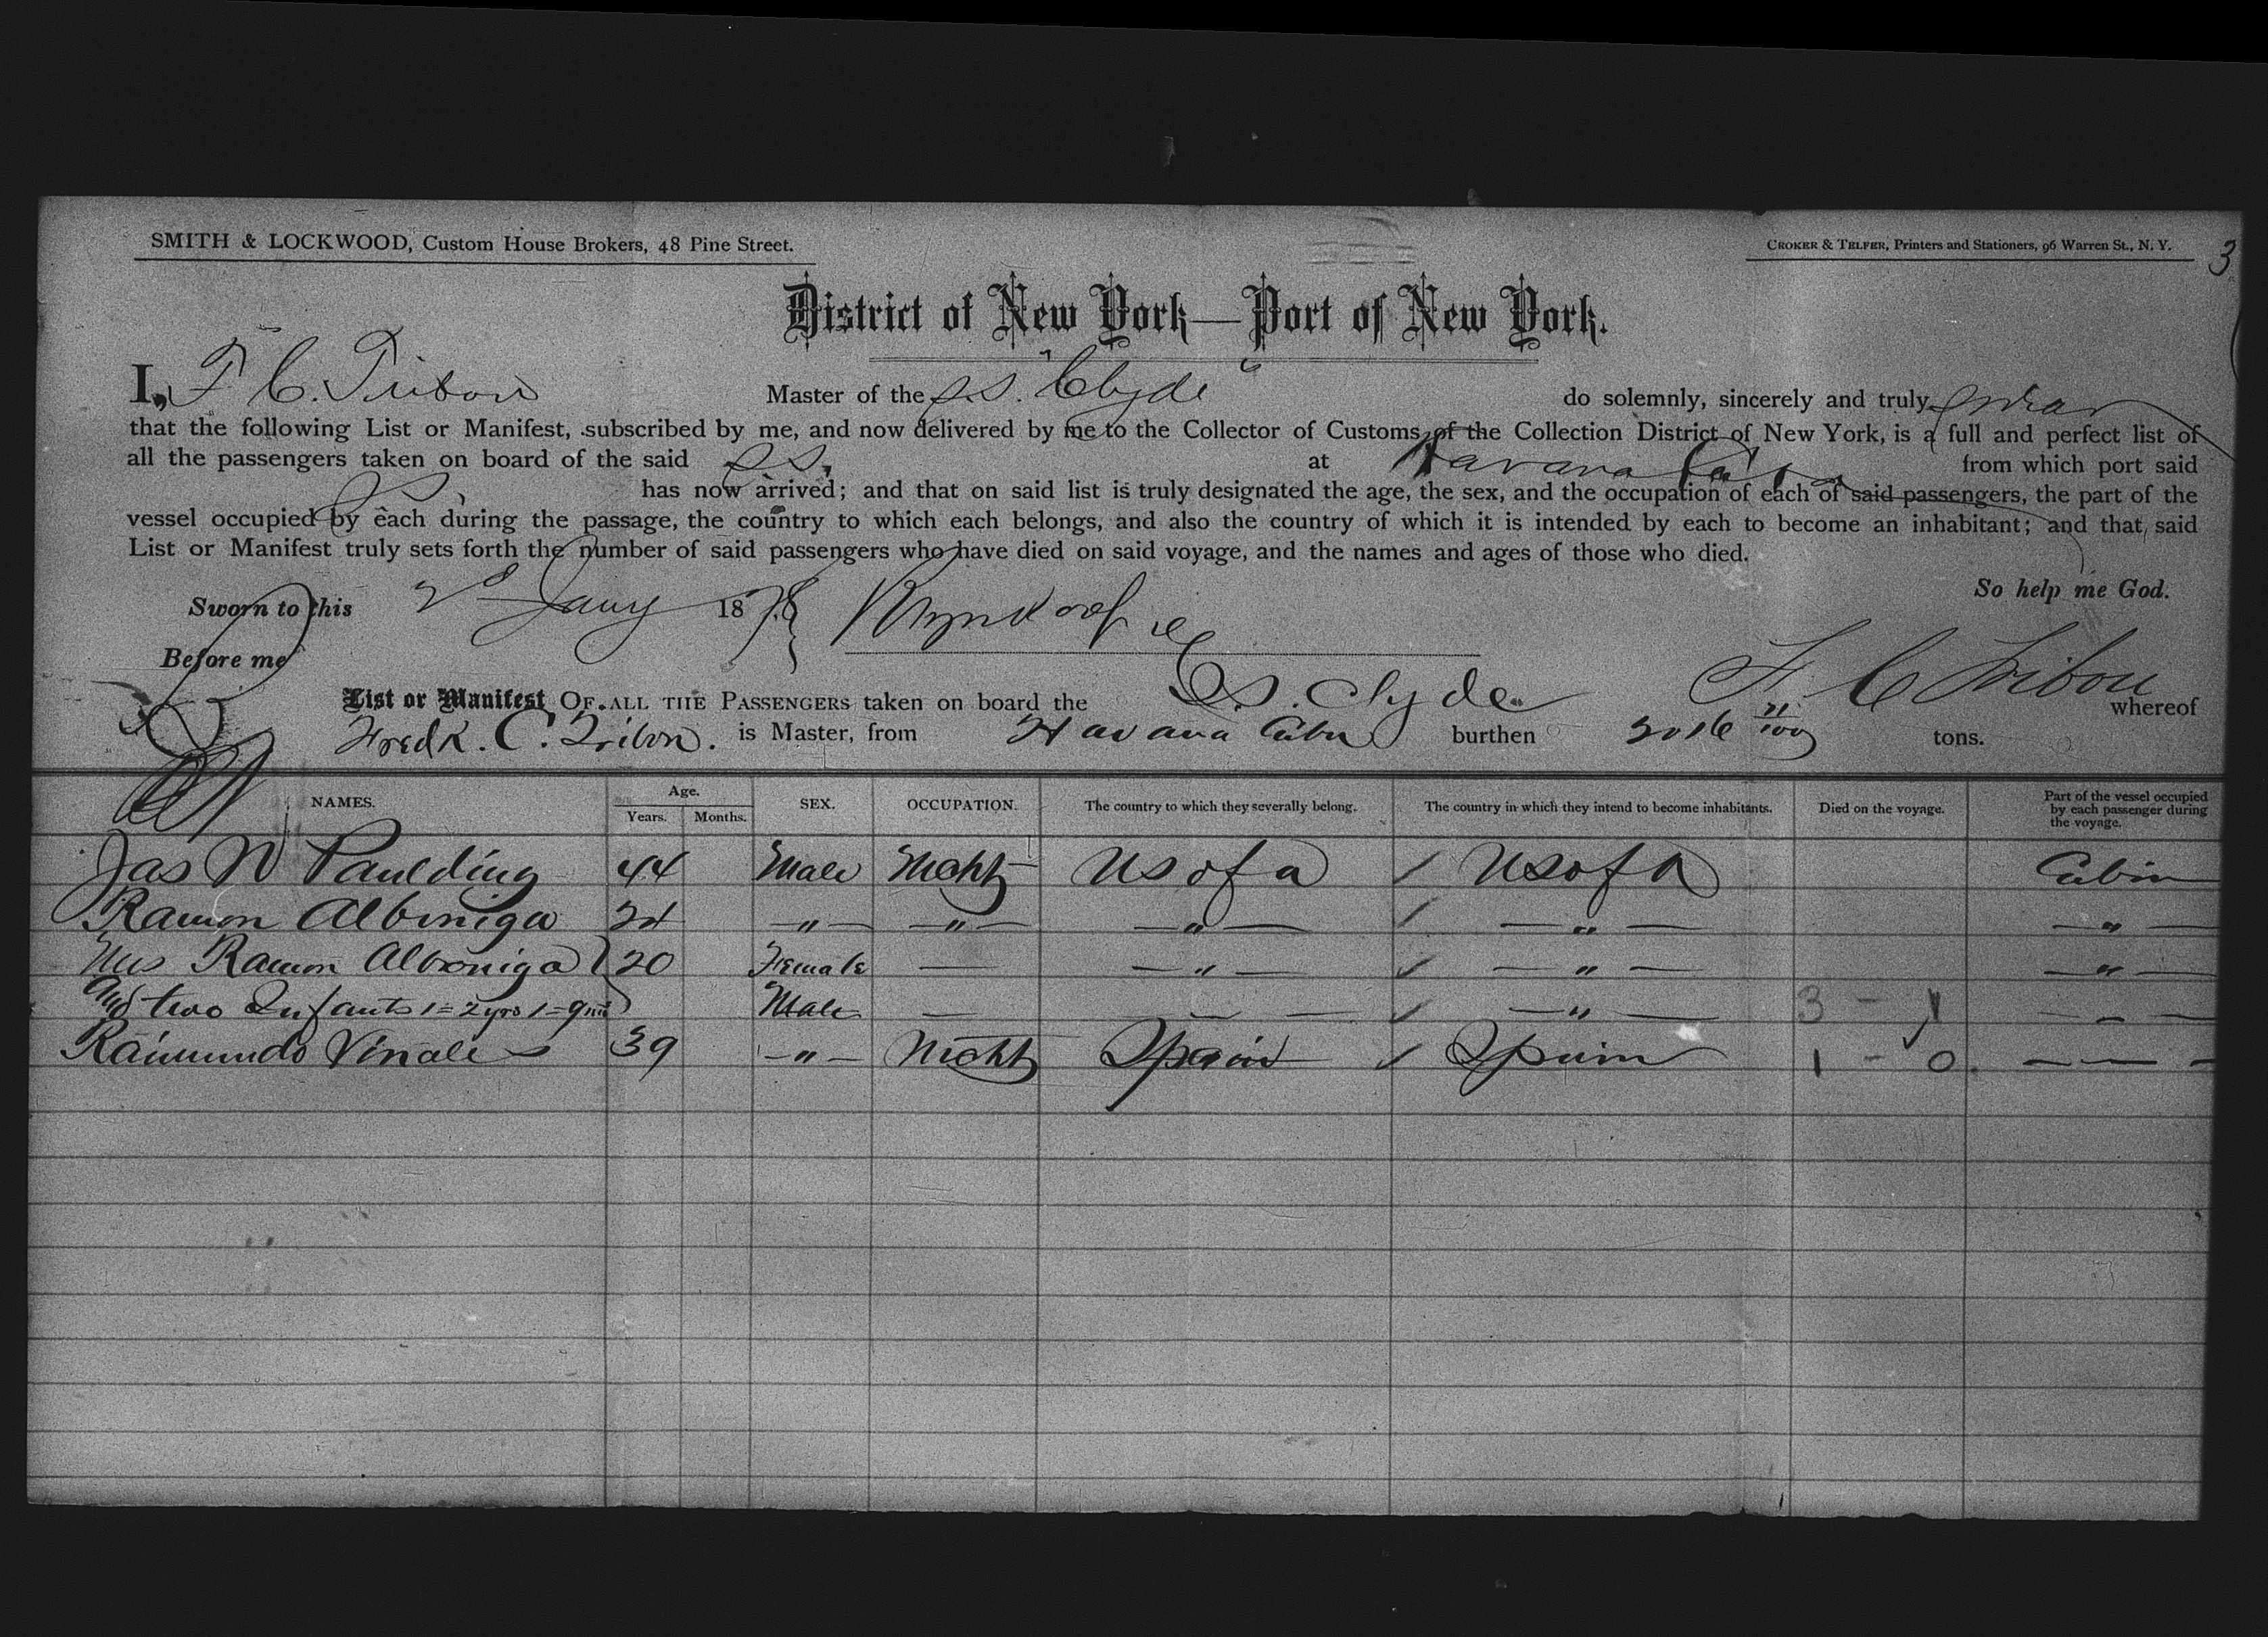 SMITH & LOCKWOOD, Custom House Brokers, 48 Pine Street.
CROKER & TELFER, Printers and Stationers, 96 Warren St., N. Y.
3
District of New York—Port of New York.
I, F C. Tribou Master of the S.S. "Clyde" do solemnly, sincerely and truly swear
that the following List or Manifest, subscribed by me, and now delivered by me to the Collector of Customs of the Collection District of New York, is a full and perfect list of
all the passengers taken on board of the said S.S. at Havana Cuba from which port said
S.S. has now arrived; and that on said list is truly designated the age, the sex, and the occupation of each of said passengers, the part of the
vessel occupied by each during the passage, the country to which each belongs, and also the country of which it is intended by each to become an inhabitant; and that said
List or Manifest truly sets forth the number of said passengers who have died on said voyage, and the names and ages of those who died.
So help me God.
Sworn to this 2d Jany 1878
Before me
F C Tribou
List or Manifest OF ALL THE PASSENGERS taken on board the S.S. Clyde whereof
Fredk. C. Tribou. is Master, from Havana Cuba burthen tons.
NAMES. Age. Years. Months. SEX. OCCUPATION. The country to which they severally belong. The country in which they intend to become inhabitants. Died on the voyage. Part of the vessel occupied by each passenger during the voyage.
Jas W Paulding 44 Male Mcht US of a / US of A Cabin
Ramon Alboniga 24 — " — — " — — " — / — " — — " —
Mrs Ramon Alboniga 20 Female — — " — / — " — — " —
And two Infants 1=2yrs 1=9ms Male — — " — / — " — 3 - 1 — " —
Raimundo Vinales 39 — " — Mcht Spain / Spain 1 - 0 — — —